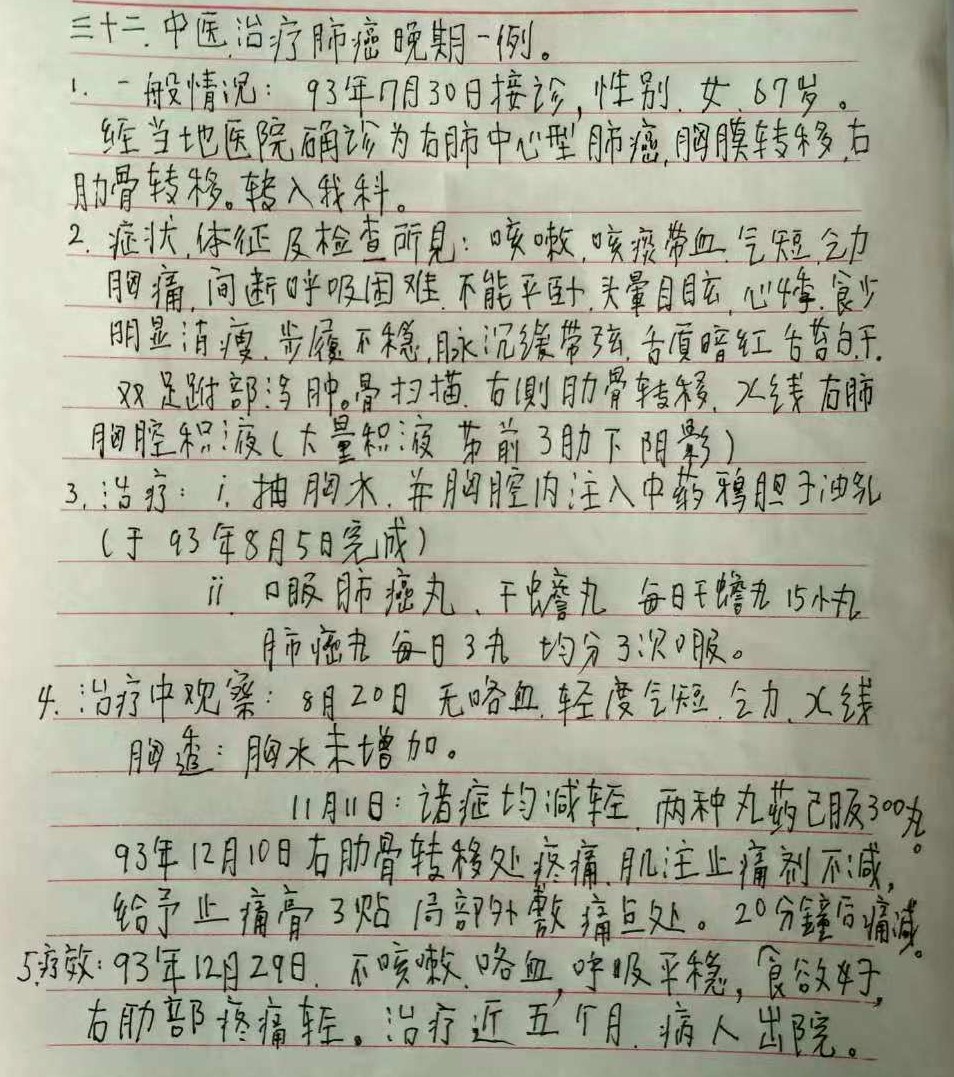 三十二.中医治疗肺癌晚期一例。
1. 一般情况: 93年7月30日接诊,性别.女.67岁。
经当地医院确诊为右肺中心型肺癌,胸膜转移,右
肋骨转移。转入我科。
2. 症状,体征及检查所见: 咳嗽,咳痰带血.气短,乏力
胸痛,间断呼吸困难.不能平卧.头晕目眩,心悸.食少
明显消瘦.步履不稳,脉沉缓带弦.舌质暗红舌苔白干.
双足跗部浮肿。骨扫描.右侧肋骨转移.X线右肺
胸腔积液(大量积液 第前3肋下阴影)
3.治疗: i.抽胸水.并胸腔内注入中药鸦胆子油乳
(于93年8月5日完成)
ii.口服肺癌丸、干蟾丸 每日干蟾丸15小丸
肺癌丸每日3丸 均分3次口服。
4.治疗中观察: 8月20日 无咯血.轻度气短.乏力.X线
胸透: 胸水未增加。
11月11日: 诸症均减轻.两种丸药已服300丸。
93年12月10日右肋骨转移处疼痛.肌注止痛剂不减,
给予止痛膏3贴 局部外敷痛点处。20分鐘后痛减。
5.疗效: 93年12月29日.不咳嗽.咯血,呼吸平稳,食欲好,
右肋部疼痛轻。治疗近五个月.病人出院。